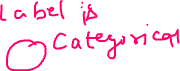 Label is
Categorical